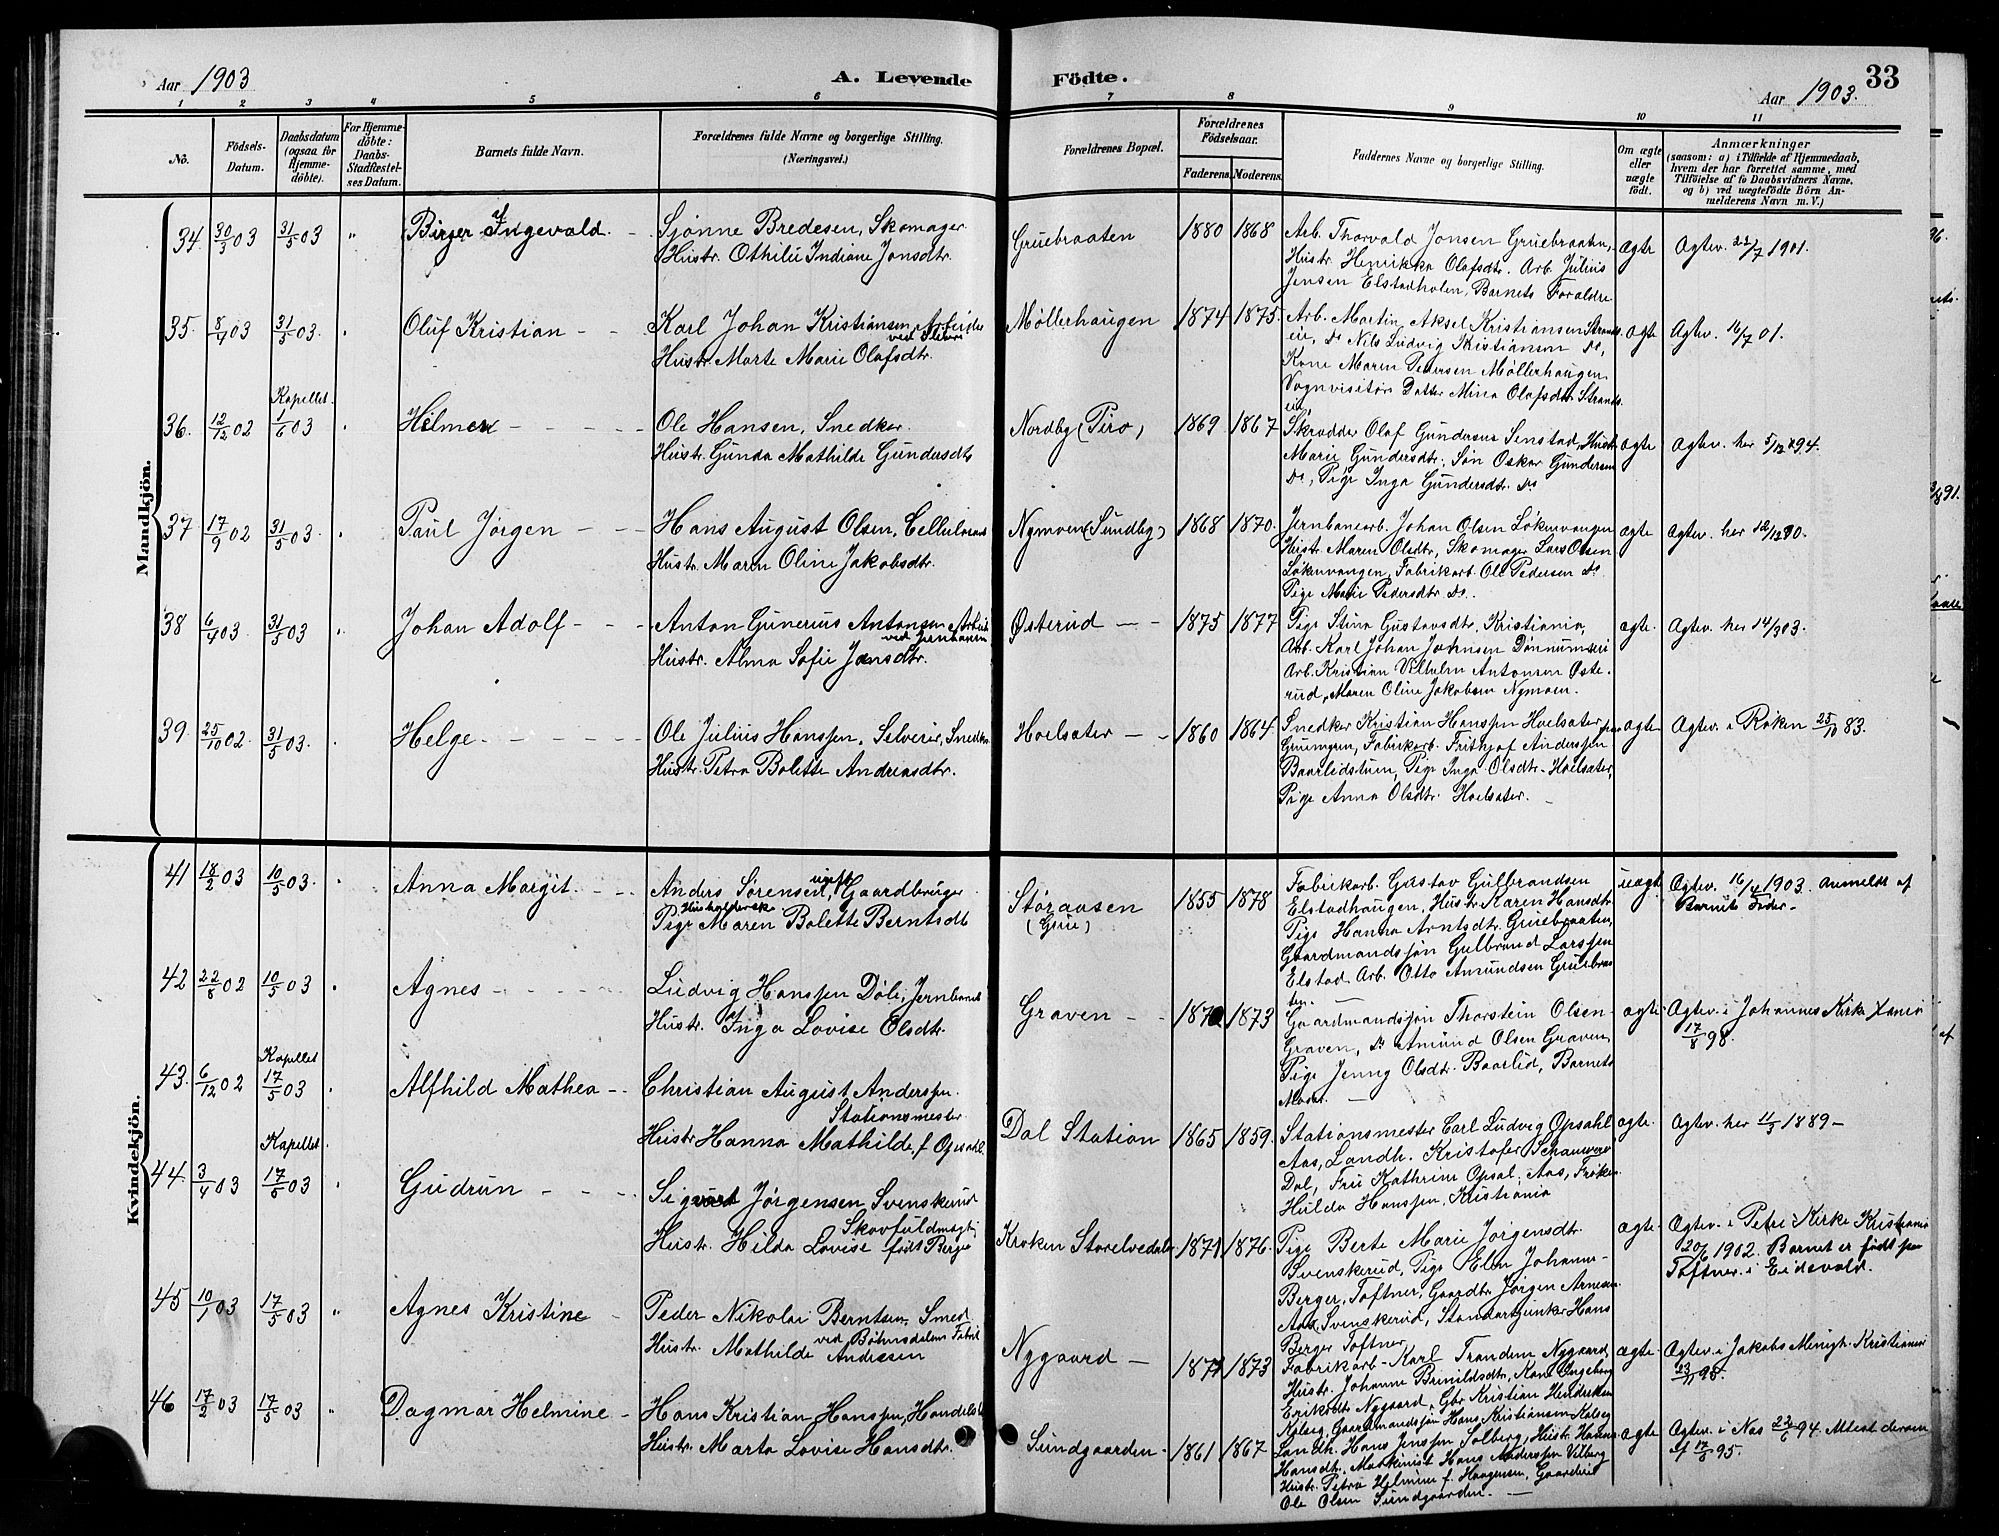 Aar 1903
A. Levende Födte.
33
Aar 1903.
1 2 3 4 5 6 7 8 9 10 11
No.
Födsels-Datum.
Daabsdatum (ogsaa for Hjemme-döbte).
For Hjemme-döbte: Daabs-Stadfæstel-ses Datum.
Barnets fulde Navn.
Forældrenes fulde Navne og borgerlige Stilling. (Næringsvei.)
Forældrenes Bopæl.
Forældrenes Födselsaar.
Faderens. Moderens.
Faddernes Navne og borgerlige Stilling.
Om ægte eller uægte födt.
Anmærkninger
(saasom: a) i Tilfælde af Hjemmedaab,
hvem der har forrettet samme, med
Tilföielse af to Daabsvidners Navne,
og b) ved uægtefödte Börn An-
melderens Navn m. V.)
Mandkjön.
34. 30/3 03 31/5 03 " Birger Ingevald. -
Sjønne Bredesen, Skomager
Hustr. Othilie Indiane Jonsdtr.
Gruebraaten 1880 1868
Arb. Thorvald Jonsen Gruebraaten,
Hustr Henrikka Olafsdtr. Arb. Julius
Jensen Elstadholen, Barnets Forældre
ægte Ægtev. 1901.
35. 8/4 03 31/5 03. Oluf Kristian - -
Karl Johan Kristiansen, Arbeider
Hustr. Marte Marie Olafsdtr.
Møllerhaugen 1874 1875.
Arb. Martin Aksel Kristiansen Strands
eie, Do Nils Ludvig Kristiansen Do,
Kone Maren Pedersen Møllerhaugen
Vognvisitør Datter Mina Olafsdtr Strands
eie
ægte Ægtev. 16/7 01.
36. 12/12 02 Kapellet 1/6 03 Hilmer - - - -
Ole Hansen, Snedker
Hustr. Gunda Mathilde Gundersdtr
Nordby (Piro) 1869 1867
Skrædder Olaf Gundersen Senstad, Hustr
Marie Gundersdtr., Søn Oskar Gundersen
Do, Pige Inga Gundersdtr. Do
ægte Ægtev. her 5/12 94.
37 17/9 02 31/5 03. Paul Jørgen - -
Hans August Olsen, Cellulosearb
Hustr. Maren Oline Jakobsdtr.
Nymoen (Sundby) 1868 1870.
Jernbanearb. Johan Olsen Løkenvangen
Hustr. Maren Olsdtr, Skomager Lars Olsen
Løkenvangen, Fabrikarb. Ole Pedersen Do.
Pige Marie Pedersdtr Do.
ægte Ægtev. her 12/12 90.
38 6/4 03. 31/5 03 Johan Adolf - - -
Anton Gunerius Antonsen, Arbeid
ved Jernbanen
Hustr. Alma Sofie Jansdtr.
Østerud - - 1875 1877
Pige Stina Gustavsdtr, Kristiania,
Arb. Karl Johan Johnsen Dønnumseie
Arb. Kristian Vilhelm Antonsen Øste-
rud, Maren Oline Jakobsen Nymoen.
ægte. Ægtev. her 14/3 03.
39 25/10 02. 31/5 03. Helge - - - - -
Ole Julius Hanssen, Selveier, Snedker
Hustr. Petra Bolette Andreasdtr.
Hoelsæter - - 1860 1864.
Snedker Kristian Hanssen Hoelsæter,
Fabrikarb. Frithjof Anderssen
Baarlidstuen, Pige Inga Olsdtr. Hoelsæter,
Pige Anna Olsdtr. Hoelsæter. -
ægte Ægtev. i Røken 25/10 83.
Kvindekjön.
41 18/2 03 10/5 03. Anna Margit. - -
Anders Sørensen, ugift Gaardbruger
Husholderske
Pige Maren Bolette Berntsdtr
Støraasen
(Grue)
1855 1878
Fabrikarb. Gustav Gulbrandsen
Elstadhaugen, Hustr Karen Hansdtr.
Pige Hanna Arntsdtr. Gruebraaten,
Gaardmandssøn Gulbrand Larssen
Elstad Arb. Otto Amundsen Gruebraa
ten.
uægte Ægtev. 16/4 1903. Anmeldt af
Barnets Fader -
42 22/8 02 10/5 03 Agnes - - - - -
Ludvig Hanssen Døli, Jernbanearb
Hustr. Inga Lovise Olsdtr.
Graven - - 1870 1873
Gaardmandssøn Thorstein Olsen
Graven, Do Amund Olsen Graven,
Pige Jenny Olsdtr. Baarlid, Barnets
Moder. -
ægte Ægtev. i Johannes Kirke Xania
17/8 98.
43. 6/12 02 Kapellet 17/5 03 Alfhild Mathea - -
Christian August Anderssen.
Stationsmester
Hustr. Hanna Mathilde, f Opsahl.
Dal Station 1865 1859.
Stationsmester Carl Ludvig Opsahl
Aas, Landh. Kristofer Schauwero
Dal, Fru Kathrine Opsal, Aas, Frøken
Hulda Hanssen, Kristiania
ægte. Ægtev. her 11/3 1889 -
44. 3/4 03 Kapellet 17/5 03 Gudrun - - -
Sigvart Jørgensen Svenskerud
Skovfuldmægtig
Hustr. Hilda Lovise født Berger
Kroken Storelvedalen 1871 1876.
Pige Berte Marie Jørgensdtr.
Svenskerud, Pige Elen Johanne
Berger, Toftner, Gaardbr Jørgen Arnesen
Aas Svenskerud, Standartjunker Hans
Berger Toftner
ægte - Ægtev. i Petri Kirke Kristiania
20/6 1902. Barnet er født paa
Toftner i Eidsvold.
45 10/1 03 17/5 03 " Agnes Kristine -
Peder Nikolai Berntsen, Smed
ved Bøhnsdalens Fabrik
Hustr. Mathilde Andresen
Nygaard - 1871 1873
Fabrikarb. Karl Trandem Nygaard,
Hustr. Johanne Brunildsdtr, Kone Ingeborg
Eriksdtr Nygaard, Gbr Kristian Hendriksen
Kolseg, Gaardmandssøn Hans Kristiansen Kolseg
ægte - Ægtev. i Jakobs Menigh. Kristiania
23/11 95.
46 17/2 03 17/5 03 " Dagmar Helmine -
Hans Kristian Hanssen, Handelsb
Hustr. Marta Lovise Hansdtr.
Sundgaarden - 1861 1867
Landh. Hans Jenssen Solberg, Hustr. Hanna
Hansdtr. Maskinist Hans Anderssen Vilberg
Hustr. Petra Helmine f. Haagensen, Gaardeier
Ole Olsen Sundgaarden. -
ægte Ægtev. i Næs 23/6 94. Attest derom
af 17/8 95.